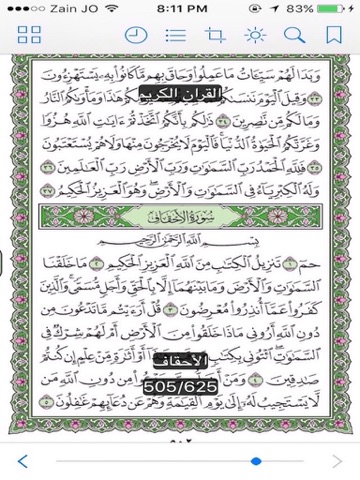 Zain JO 8:11 PM 83%
وَبَدَا لَهُمْ سَيِّـَٔاتُ مَا عَمِلُوا۟ وَحَاقَ بِهِم مَّا كَانُوا۟ بِهِۦ يَسْتَهْزِءُونَ
القران الكريم
٣٣ وَقِيلَ ٱلْيَوْمَ نَنسَىٰكُمْ هَٰذَا وَمَأْوَىٰكُمُ ٱلنَّارُ
وَمَا لَكُم مِّن نَّٰصِرِينَ ٣٤ ذَٰلِكُم بِأَنَّكُمُ ٱتَّخَذْتُمْ ءَايَٰتِ ٱللَّهِ هُزُوًا
وَغَرَّتْكُمُ ٱلْحَيَوٰةُ ٱلدُّنْيَا فَٱلْيَوْمَ لَا يُخْرَجُونَ مِنْهَا وَلَا هُمْ يُسْتَعْتَبُونَ
٣٥ فَلِلَّهِ ٱلْحَمْدُ رَبِّ ٱلسَّمَٰوَٰتِ وَرَبِّ ٱلْأَرْضِ رَبِّ ٱلْعَٰلَمِينَ ٣٦
وَلَهُ ٱلْكِبْرِيَآءُ فِى ٱلسَّمَٰوَٰتِ وَٱلْأَرْضِ وَهُوَ ٱلْعَزِيزُ ٱلْحَكِيمُ ٣٧
سُورَةُ الأَحْقَافِ
بِسْمِ ٱللَّهِ ٱلرَّحْمَٰنِ ٱلرَّحِيمِ
حمٓ ١ تَنزِيلُ ٱلْكِتَٰبِ مِنَ ٱللَّهِ ٱلْعَزِيزِ ٱلْحَكِيمِ ٢ مَا خَلَقْنَا
ٱلسَّمَٰوَٰتِ وَٱلْأَرْضَ وَمَا بَيْنَهُمَآ إِلَّا بِٱلْحَقِّ وَأَجَلٍ مُّسَمًّى وَٱلَّذِينَ
كَفَرُوا۟ عَمَّآ أُنذِرُوا۟ مُعْرِضُونَ ٣ قُلْ أَرَءَيْتُم مَّا تَدْعُونَ مِن
دُونِ ٱللَّهِ أَرُونِى مَاذَا خَلَقُوا۟ مِنَ ٱلْأَرْضِ أَمْ لَهُمْ شِرْكٌ فِى
ٱلسَّمَٰوَٰتِ ٱئْتُونِى بِكِتَٰبٍ أَوْ أَثَٰرَةٍ مِّنْ عِلْمٍ إِن كُنتُمْ
الأحقاف
صَٰدِقِينَ ٤ وَمَنْ أَضَلُّ مِن دُونِ ٱللَّهِ مَن
505/625
لَّا يَسْتَجِيبُ لَهُۥٓ إِلَىٰ يَوْمِ ٱلْقِيَٰمَةِ وَهُمْ عَن دُعَآئِهِمْ غَٰفِلُونَ ٥